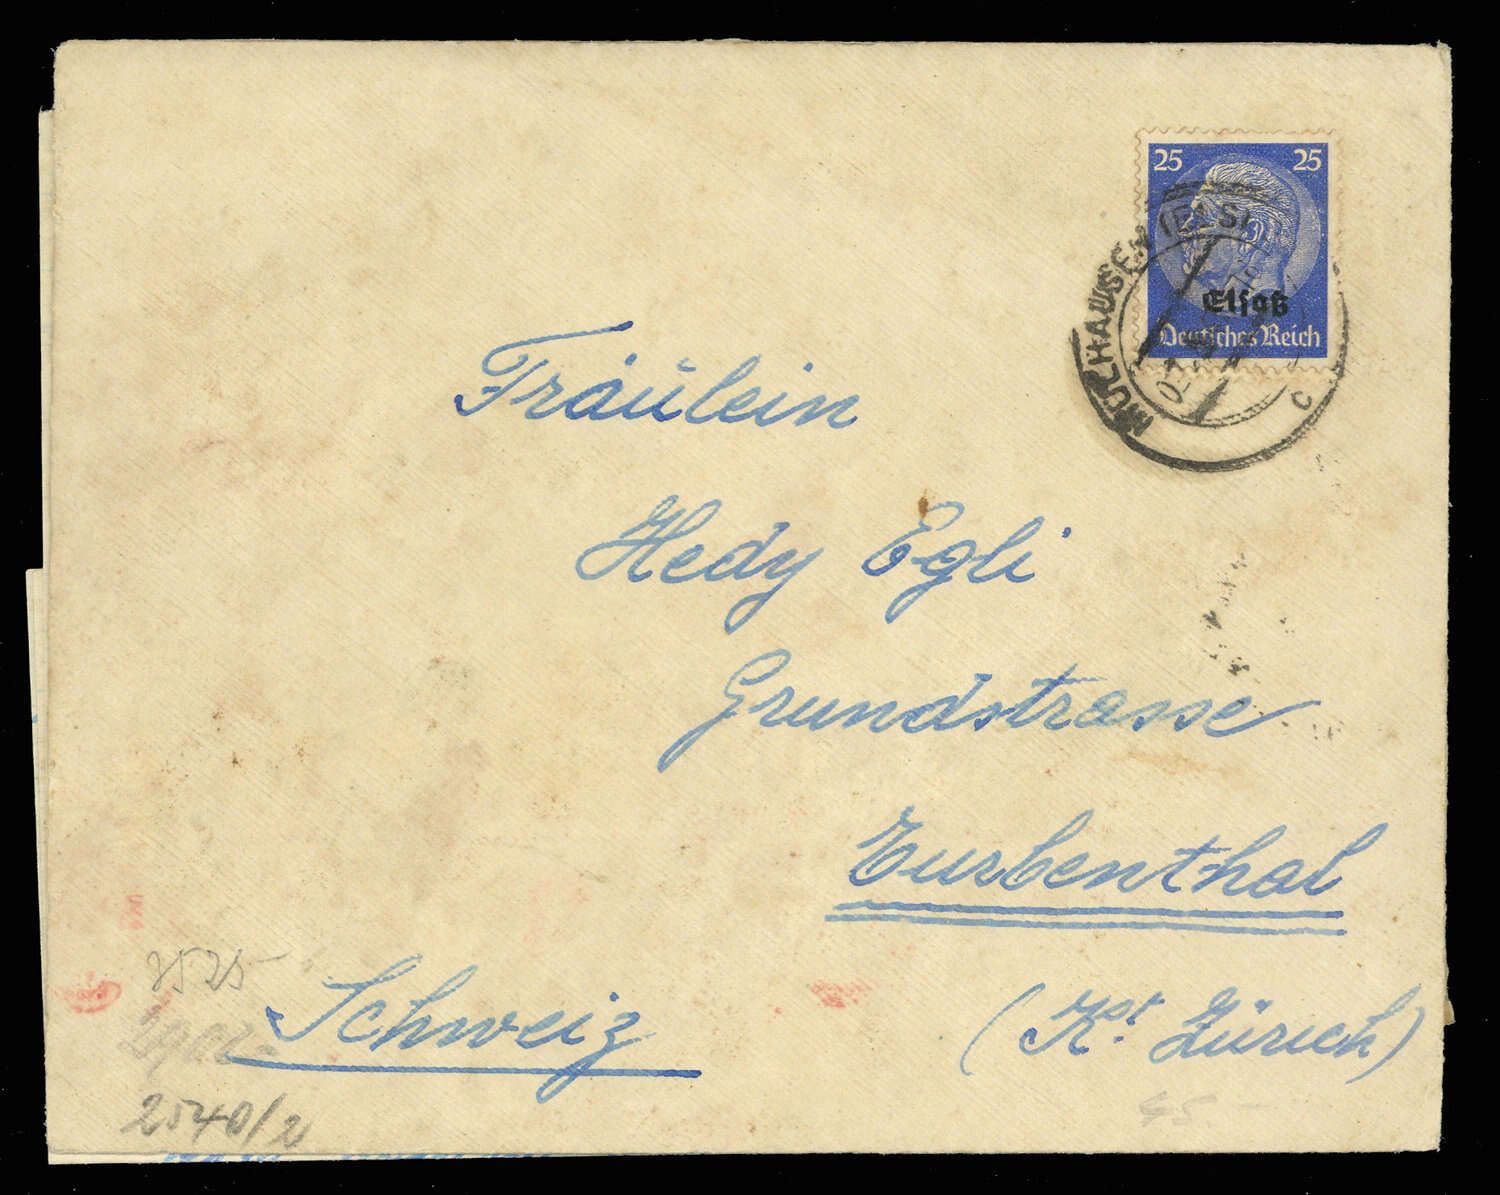 25 25
Elsaß
Deutsches Reich
MÜLHAUSEN (ELS)
c
Fräulein
Hedy Egli
Grundstrasse
Turbenthal
(Kt. Zürich)
Schweiz
2540/2
45.-